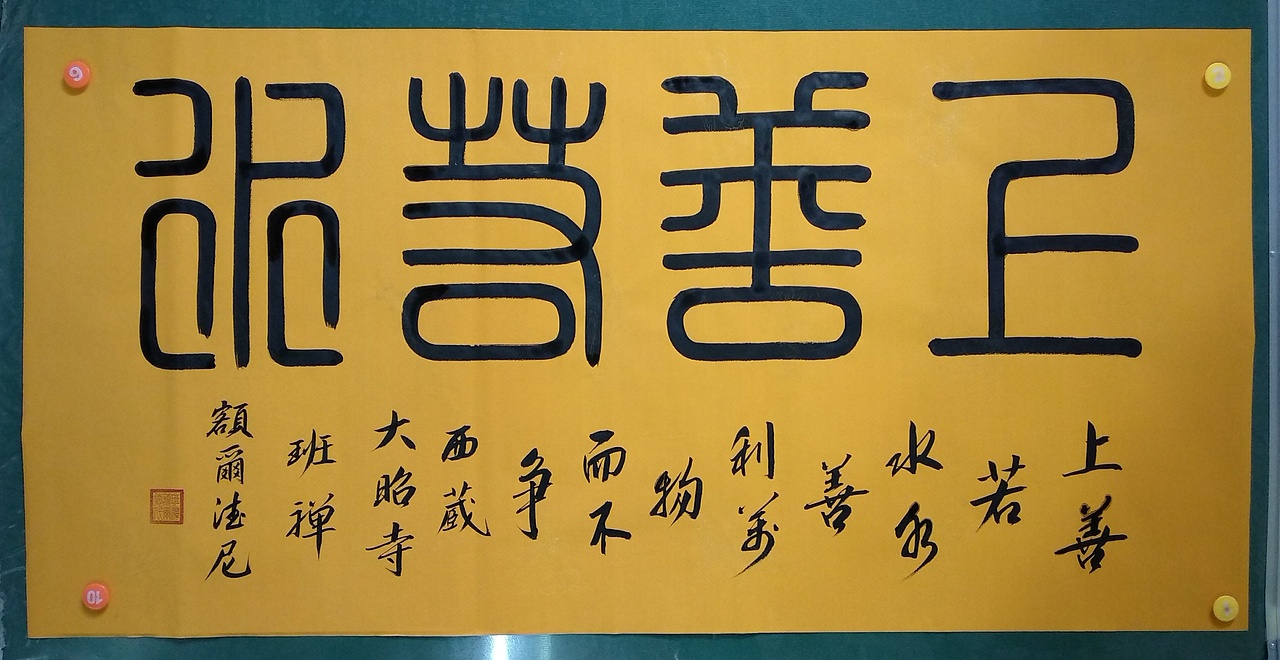 上善若水
上善
若
水水
善
利萬
物
而不
争
西蔵
大昭寺
班禅
額爾德尼
10